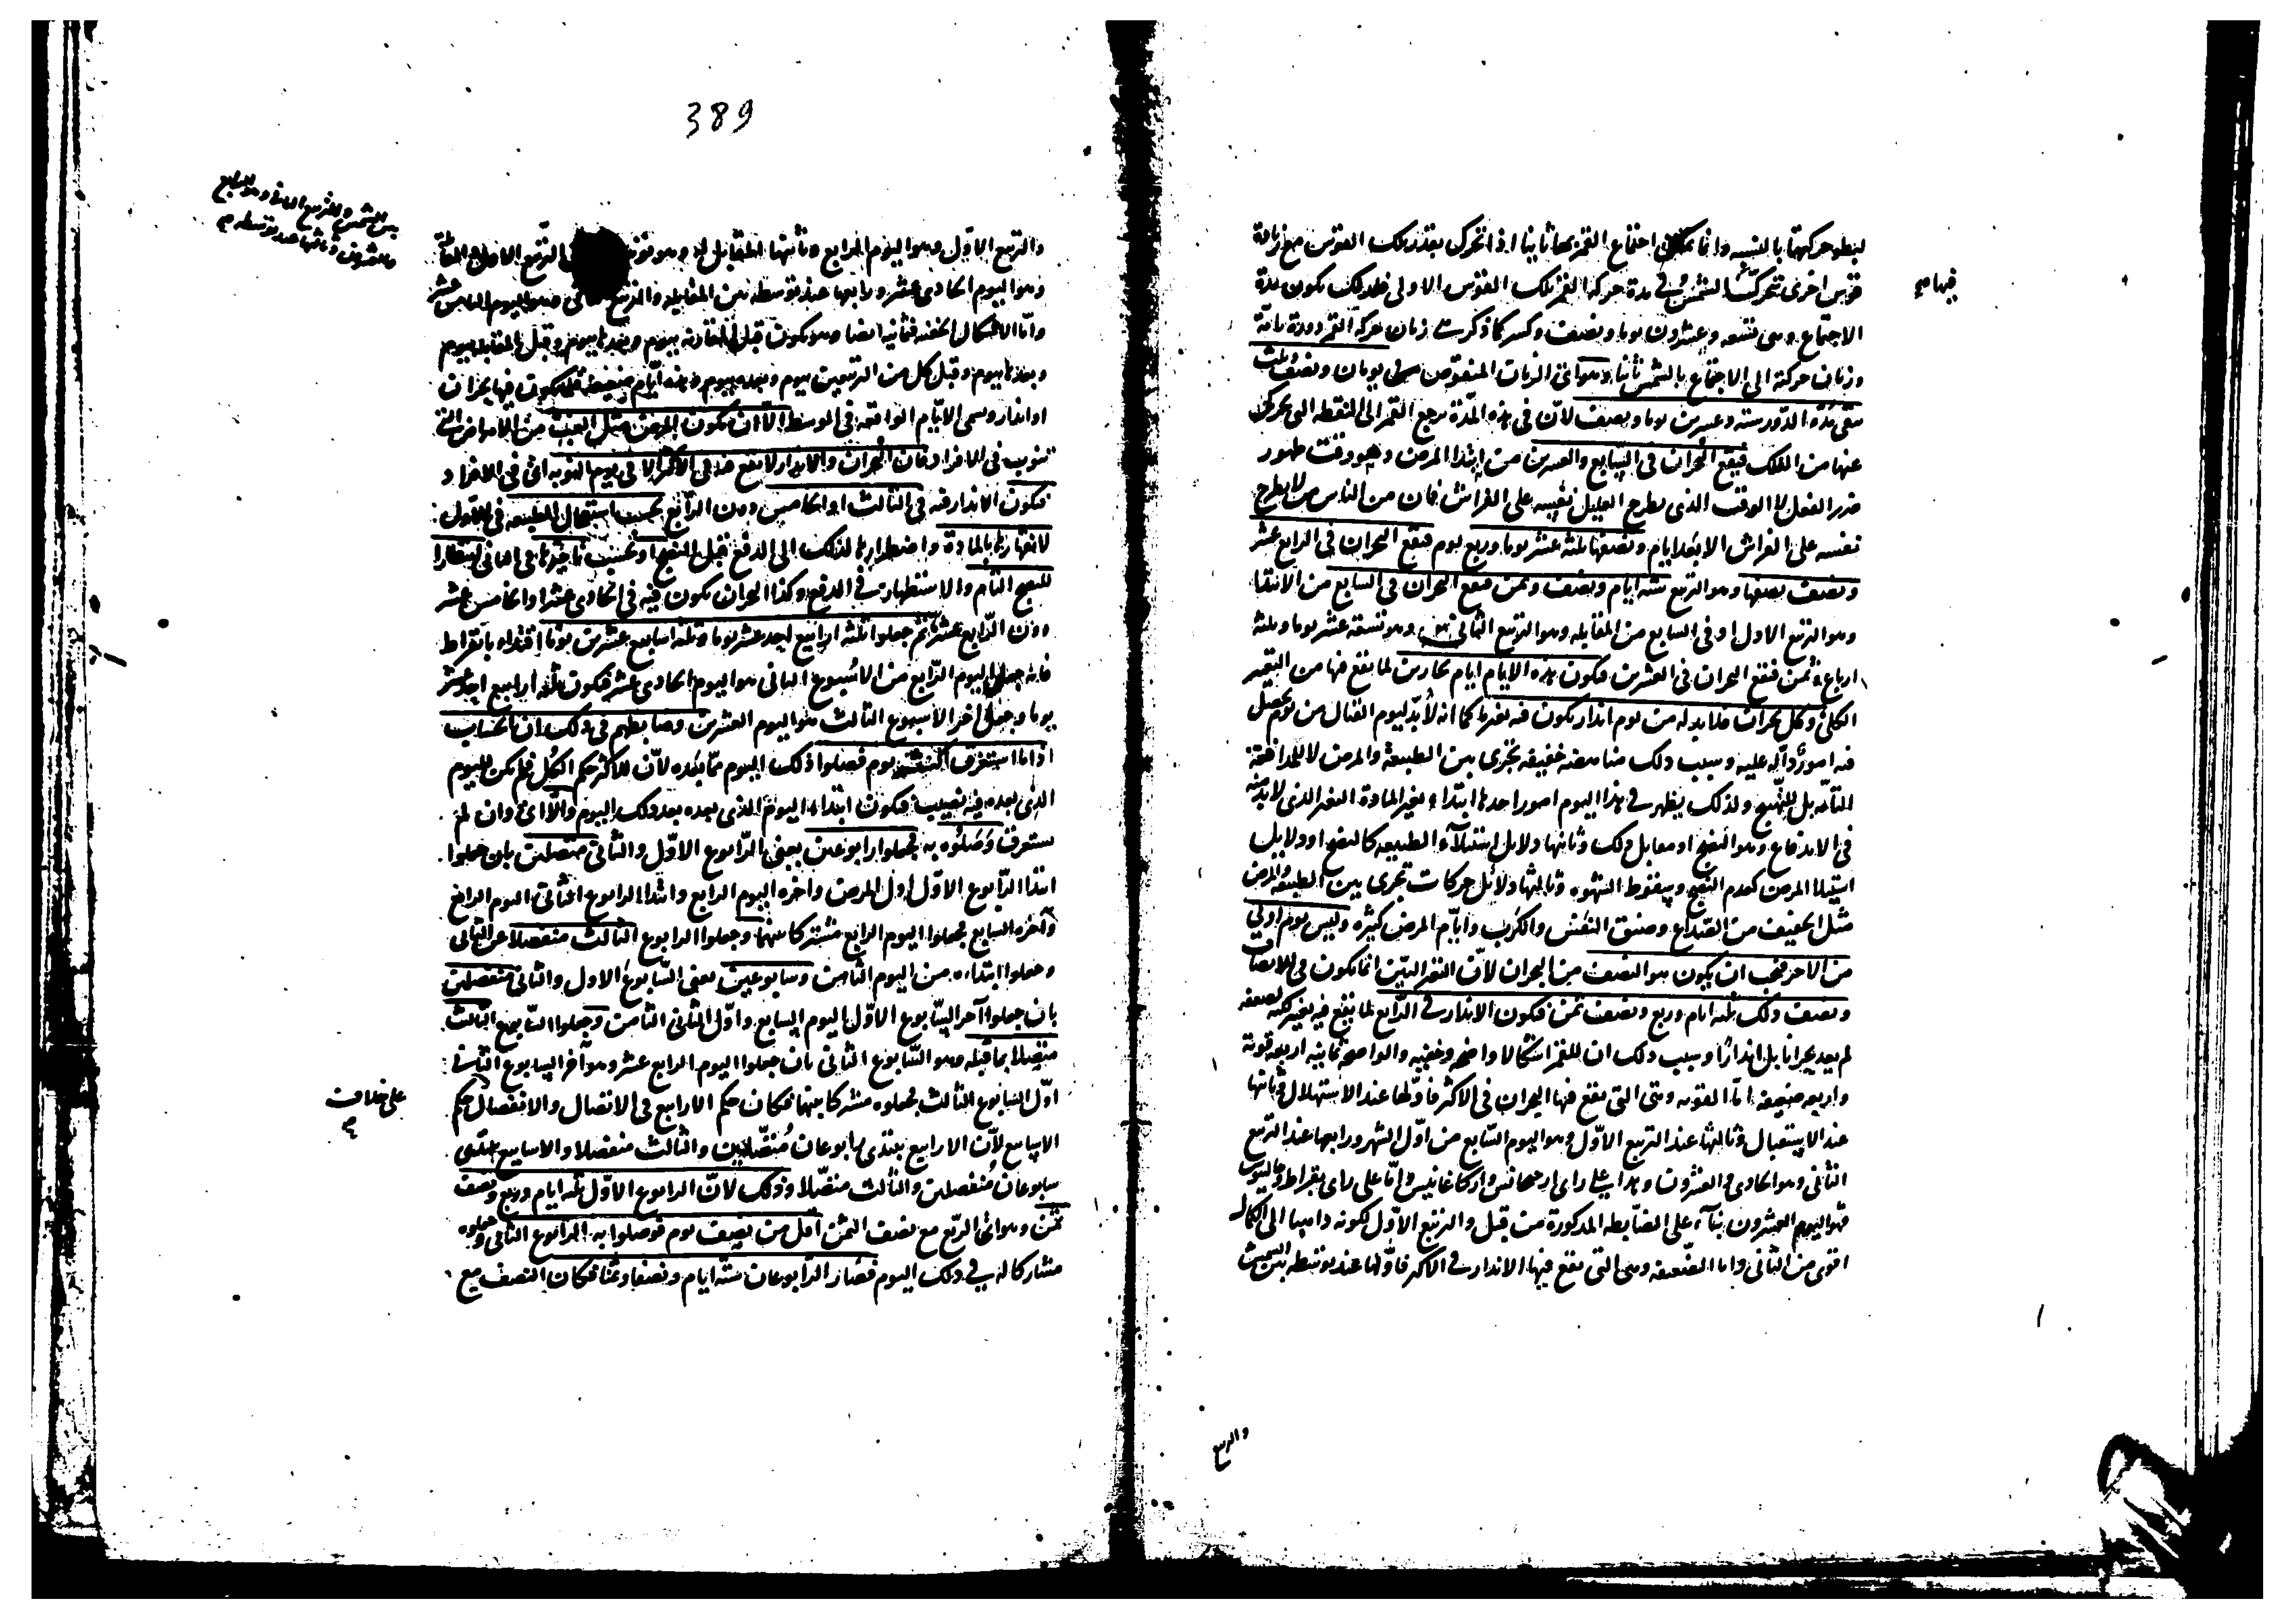 لبطو حركتها بالنسبه وانما يمكن اجتماع القمر بها ثانيا اذا تحرك بقدر تلك القوس مع زيادة
قوس اخرى تحركت الشمس في مدة حركة القمر تلك القوس الاولى فلذلك يكون مدة
فيها
الاجتماع وهى تسعه وعشرون يوما ونصف وكسر كما ذكر زمان حركة القمر دورة تامة
وزمان حركته الى الاجتماع بالشمس ثانيا وهو اى الزمان المنقوص يومان ونصف وثلث
بقى مدة الدور ستة وعشرين يوما ونصف لان فى هذه المدة يرجع القمر الى النقطه التى تحرك
عنها من الفلك فيقع البحران فى السابع والعشرين من ابتدا المرض وهو وقت ظهور
ضرر الفعل لا الوقت الذى يطرح العليل نفسه على الفراش فان من الناس من لا يطرح
نفسه على الفراش الا بعد ايام ونصفها ثلثة عشر يوما وربع يوم فيقع البحران فى الرابع عشر
ونصف نصفها وهو التربيع ستة ايام ونصف وثمن فيقع البحران فى السابع من الابتدا
وهو التربيع الاول او فى السابع من المقابله وهو التربيع الثانى وهو تسعة عشر يوما وثلثة
ارباع وثمن فيقع البحران فى العشرين فيكون هذه الايام ايام بحارين لما يقع فيها من التغير
الكلى وكل بحران فلا بد له من يوم انذار يكون فيه تغير ما كما انه لا بد ليوم القتال من يوم يحصل
فيه امور دالة عليه وسبب ذلك مناهضه خفيفه تجرى بين الطبيعة والمرض لا للمدافعة
التامه بل للتهيج ولذلك يظهر فى هذا اليوم امور احدها ابتداء تغير المادة التغير الذى لا بد منه
فى الاندفاع وهو النضج او مقابل ذلك وثانيها دلايل استيلاء الطبيعه كالنضج او دلايل
استيلا المرض كعدم النضج وسقوط الشهوه وثالثها دلائل حركات تجرى بين الطبيعه والمرض
مثل الخفيف من الصداع وضيق النفس والكرب وايام المرض كثيره وليس يوم اولى
من الاخر فيجب ان يكون هو النصف من البحران لان التغير البين انما يكون فى الانصاف
ونصف ذلك ثلثه ايام وربع ونصف ثمن فيكون الانذار فى الرابع لما يقع فيه تغير لكنه لضعفه
لم يعد بحرانا بل انذارا وسبب ذلك ان للقمر اشكالا واضحه وخفيه والواضحة ثمانيه اربعه قوية
واربعه ضعيفه اما القويه وهى التى يقع فيها البحران فى الاكثر فاولها عند الاستهلال وثانيها
عند الاستقبال وثالثها عند التربيع الاول وهو اليوم السابع من اول الشهر ورابعها عند التربيع
الثانى وهو الحادى والعشرون وهذا على راى ارخيجانس واركاغانيس واما على راى بقراط وجالينوس
فهو اليوم العشرون بناء على الضابطه المذكورة من قبل والتربيع الاول لكونه ذاهبا الى الكمال
اقوى من الثانى واما الضعيفه وهى التى يقع فيها الانذار فى الاكثر فاولها عند توسطه بين الشمس
والتربيع
389
بين الشمس والتربيع الثانى وهو السابع
والعشرون وثالثها عند توسطه
والتربيع الاول وهو اليوم الرابع وثانيها المقابل له وهو التربيع الاول والمقابلة
وهو اليوم الحادى عشر ورابعها عند توسطه بين المقابله والتربيع وهو اليوم الثامن عشر
واما الاشكال الخفيه فثمانيه ايضا وهو يكون قبل المقارنه بيوم وبعدها بيوم وقبل المقابله بيوم
وبعدها بيوم وقبل كل من التربيعين بيوم وبعده بيوم وهذه ايام ضعيفة قلما يكون فيها بحران
او انذار وسمى الايام الواقعه فى الوسط الا ان يكون المرض مثل الغب من الامراض التى
تنوب فى الافراد فان البحران والانذار لا يقع فى الاكثر الا فى يوم النوبه اى فى الافراد
فيكون الانذار فيه فى الثالث او الخامس دون الرابع بحسب استعجال الطبيعه فى الاول
لانقهارها بالمادة واضطرارها لذلك الى الدفع قبل النضج او بحسب تاخيرها فى الثانى انتظارا
للنضج التام والاستظهار فى الدفع وكذا البحران يكون فيه فى الحادى عشر او الخامس عشر
دون الرابع عشر ثم جعلوا ثلثة ارابيع احد عشر يوما وثلثه اسابيع عشرين يوما اقتداء بابقراط
فانه جعل اليوم الرابع من الاسبوع الثانى هو اليوم الحادى عشر فيكون ثلثه ارابيع احد عشر
يوما وجعل اخر الاسبوع الثالث هو اليوم العشرين وضابطهم فى ذلك ان الحساب
اذا ما استغرق اكثر يوم فصلوا ذلك اليوم مما بعده لان للاكثر حكم الكل فلم يكن لليوم
الذى بعده فيه نصيب فيكون ابتداء اليوم الذى بعده بعد ذلك اليوم والا اى وان لم
يستغرق وصلوه به فجعلوا رابوعين يعنى الرابوع الاول والثانى متصلين بان جعلوا
ابتدا الرابوع الاول اول المرض واخره اليوم الرابع وابتداء الرابوع الثانى اليوم الرابع
وآخره السابع فجعلوا اليوم الرابع مشتركا بينهما وجعلوا الرابوع الثالث منفصلا عن الثانى
وجعلوا ابتداءه من اليوم الثامن وسابوعين يعنى السابوع الاول والثانى منفصلين
بان جعلوا آخر السابوع الاول اليوم السابع واول الثانى الثامن وجعلوا السابوع الثالث
متصلا بما قبله وهو السابوع الثانى بان جعلوا اليوم الرابع عشر وهو آخر السابوع الثانى
اول السابوع الثالث فجعلوه مشتركا بينهما فكان حكم الارابيع فى الاتصال والانفصال حكم
على خلاف
الاسابيع لان الارابيع يبتدى رابوعان متصلين والثالث منفصلا والاسابيع يبتدى
سابوعان منفصلين والثالث متصلا وذلك لان الرابوع الاول ثلثه ايام وربع ونصف
ثمن وهو اى الربع مع نصف الثمن اقل من نصف يوم فوصلوا به الرابوع الثانى وجعلوه
مشاركا له فى ذلك اليوم فصار الرابوعان ستة ايام ونصفا وثمنا فكان النصف مع